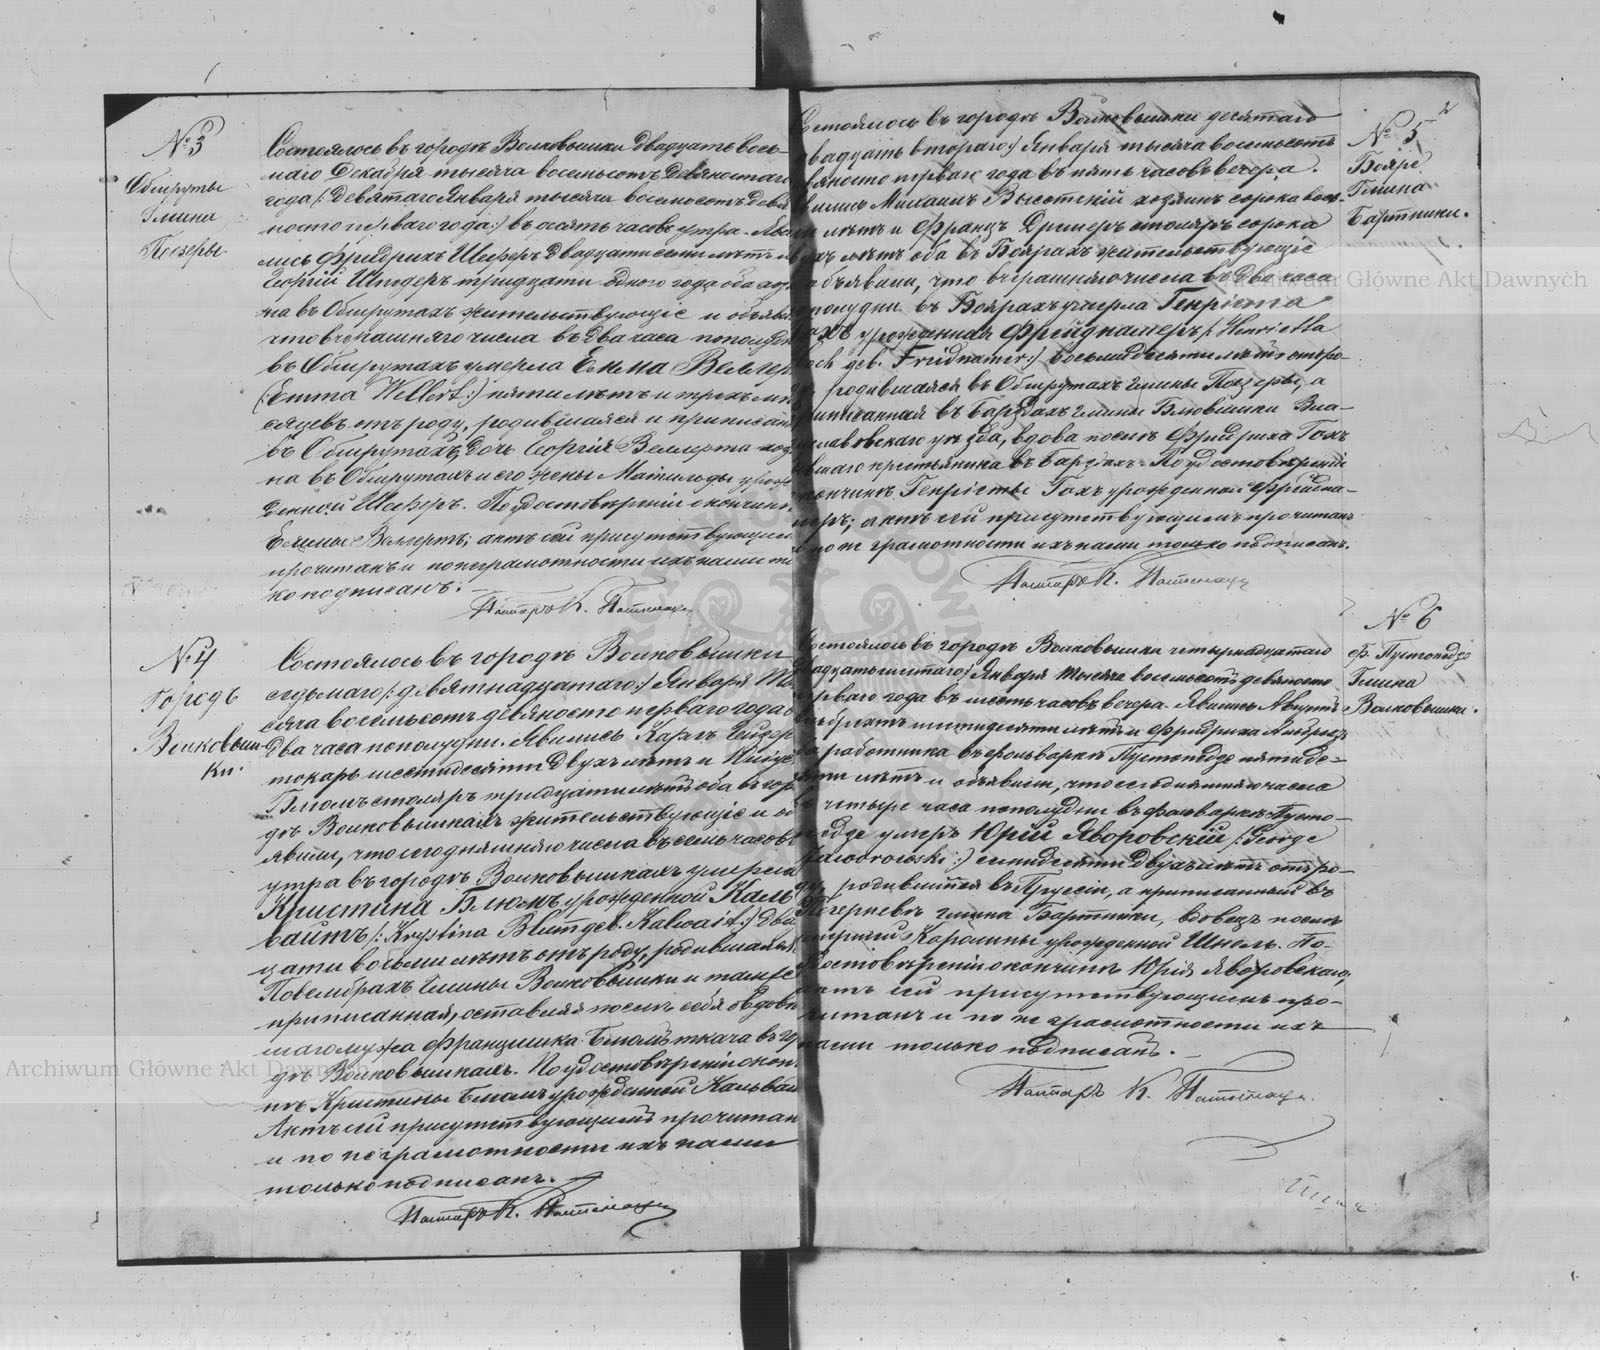 № 3
Обшруты
Гмина
Поезеры
Состоялось въ городѣ Волковышки двадцать вось-
маго Декабря тысяча восемьсотъ девяностаго
года /: девятаго Января тысяча восемьсотъ девя
носто перваго года :/ въ десять часовъ утра. Яви
лись Фридрихъ Шеферъ двадцати семи лѣтъ и
Георгій Штодеръ тридцати одного года оба хозя
на въ Обшрутахъ жительствующіе и объяви
что вчерашняго числа въ два часа пополудни
въ Обшрутахъ умерла Емма Веллер
(: Emma Wellert :) пяти лѣтъ и трехъ мѣ
сяцевъ отъ роду, родившаяся и приписан
въ Обшрутахъ, дочь Георгія Веллерта хозя
на въ Обшрутахъ и его жены Матильды урож
денной Шеферъ. По удостовѣреніи о кончинѣ
Еммы Веллертъ; актъ сей присутствующимъ
прочитанъ и по неграмотности ихъ нами то
ко подписанъ.
Пасторъ К.
№ 4
Городъ
Волковыш-
ки.
Состоялось въ городѣ Волковышки
седьмаго /: девятнадцатаго :/ Января ты
сяча восемьсотъ девяносто перваго года въ
два часа пополудни. Явились Карлъ
токарь шестидесяти двухъ лѣтъ и
Блюмъ столяръ тридцати лѣтъ оба въ горо
дѣ Волковышкахъ жительствующіе и об
явили, что сегодняшняго числа въ семь часовъ
утра въ городѣ Волковышкахъ умерла
Кристина Блюмъ урожденной Каль
вайтъ /: Krystina Blum geb. Kalwait :/ два
цати восьми лѣтъ отъ роду, родившаяся
гмины Волковышки и тамже
приписанная, оставляя послѣ себя овдовѣ
шаго мужа Францишка Блюмъ ткача въ го
дѣ Волковышкахъ. По удостовѣреніи о кон
нѣ Кристины Блюмъ урожденной Кальвай
Актъ сей присутствующимъ прочитан
и по неграмотности ихъ нами
только подписанъ.
Пасторъ К.
2
№ 5
Бояре
Гмина
Бартники.
Состоялось въ городѣ Волковышки десятаго
двадцать втораго :/ Января тысяча восемьсотъ
вяносто перваго года въ пять часовъ вечера.
вились Михаилъ Высотскій хозяинъ сорока вось-
ми лѣтъ и Францъ столяръ сорока
лѣтъ оба въ Боярахъ жительствующіе
объявили, что вчерашняго числа въ два часа
полудни въ Боярахъ умерла Генріета
Гохъ урожденная Фрейднамеръ /: Henrietta
och geb. Fridnamer :/ восьмидесяти лѣтъ отъ ро-
родившаяся въ Обшрутахъ гмины Поезеры, а
приписанная въ Барздахъ гмины Блювишки Вла-
славовскаго уѣзда, вдова послѣ Фридриха Гохъ
бывшаго крестьянина въ Барздахъ. По удостовѣреніи
кончинѣ Генріеты Гохъ урожденной Фрейдна-
меръ; актъ сей присутствующимъ прочитанъ
и по не грамотности ихъ нами только подписанъ.
Пасторъ К.
№ 6
ф. Пустопедзе
Гмина
Волковышки.
Состоялось въ городѣ Волковышки четырнадцатаго
двадцать шестаго/ Января тысяча восемьсотъ девяносто
перваго года въ шесть часовъ вечера. Явились Августъ
пятидесяти лѣтъ и Фридрихъ
работника въ фольваркѣ Пустопедзе пятиде-
сяти лѣтъ и объявили, что сегодняшняго числа
въ четыре часа пополудни въ фольваркѣ Пусто-
педзе умеръ Юрій Яворовскій /: George
Jaworowski :/ семидесяти двухъ лѣтъ отъ ро-
ду, родившійся въ Пруссіи, а приписанный въ
гмина Бартники, вдовецъ послѣ
Каролины урожденной Шнель. По
удостовѣреніи о кончинѣ Юрія Яворовскаго,
актъ сей присутствующимъ про-
читанъ и по не грамотности ихъ
нами только подписанъ.
Пасторъ К.
Archiwum Główne Akt Dawnych
Archiwum Główne Akt Dawnych